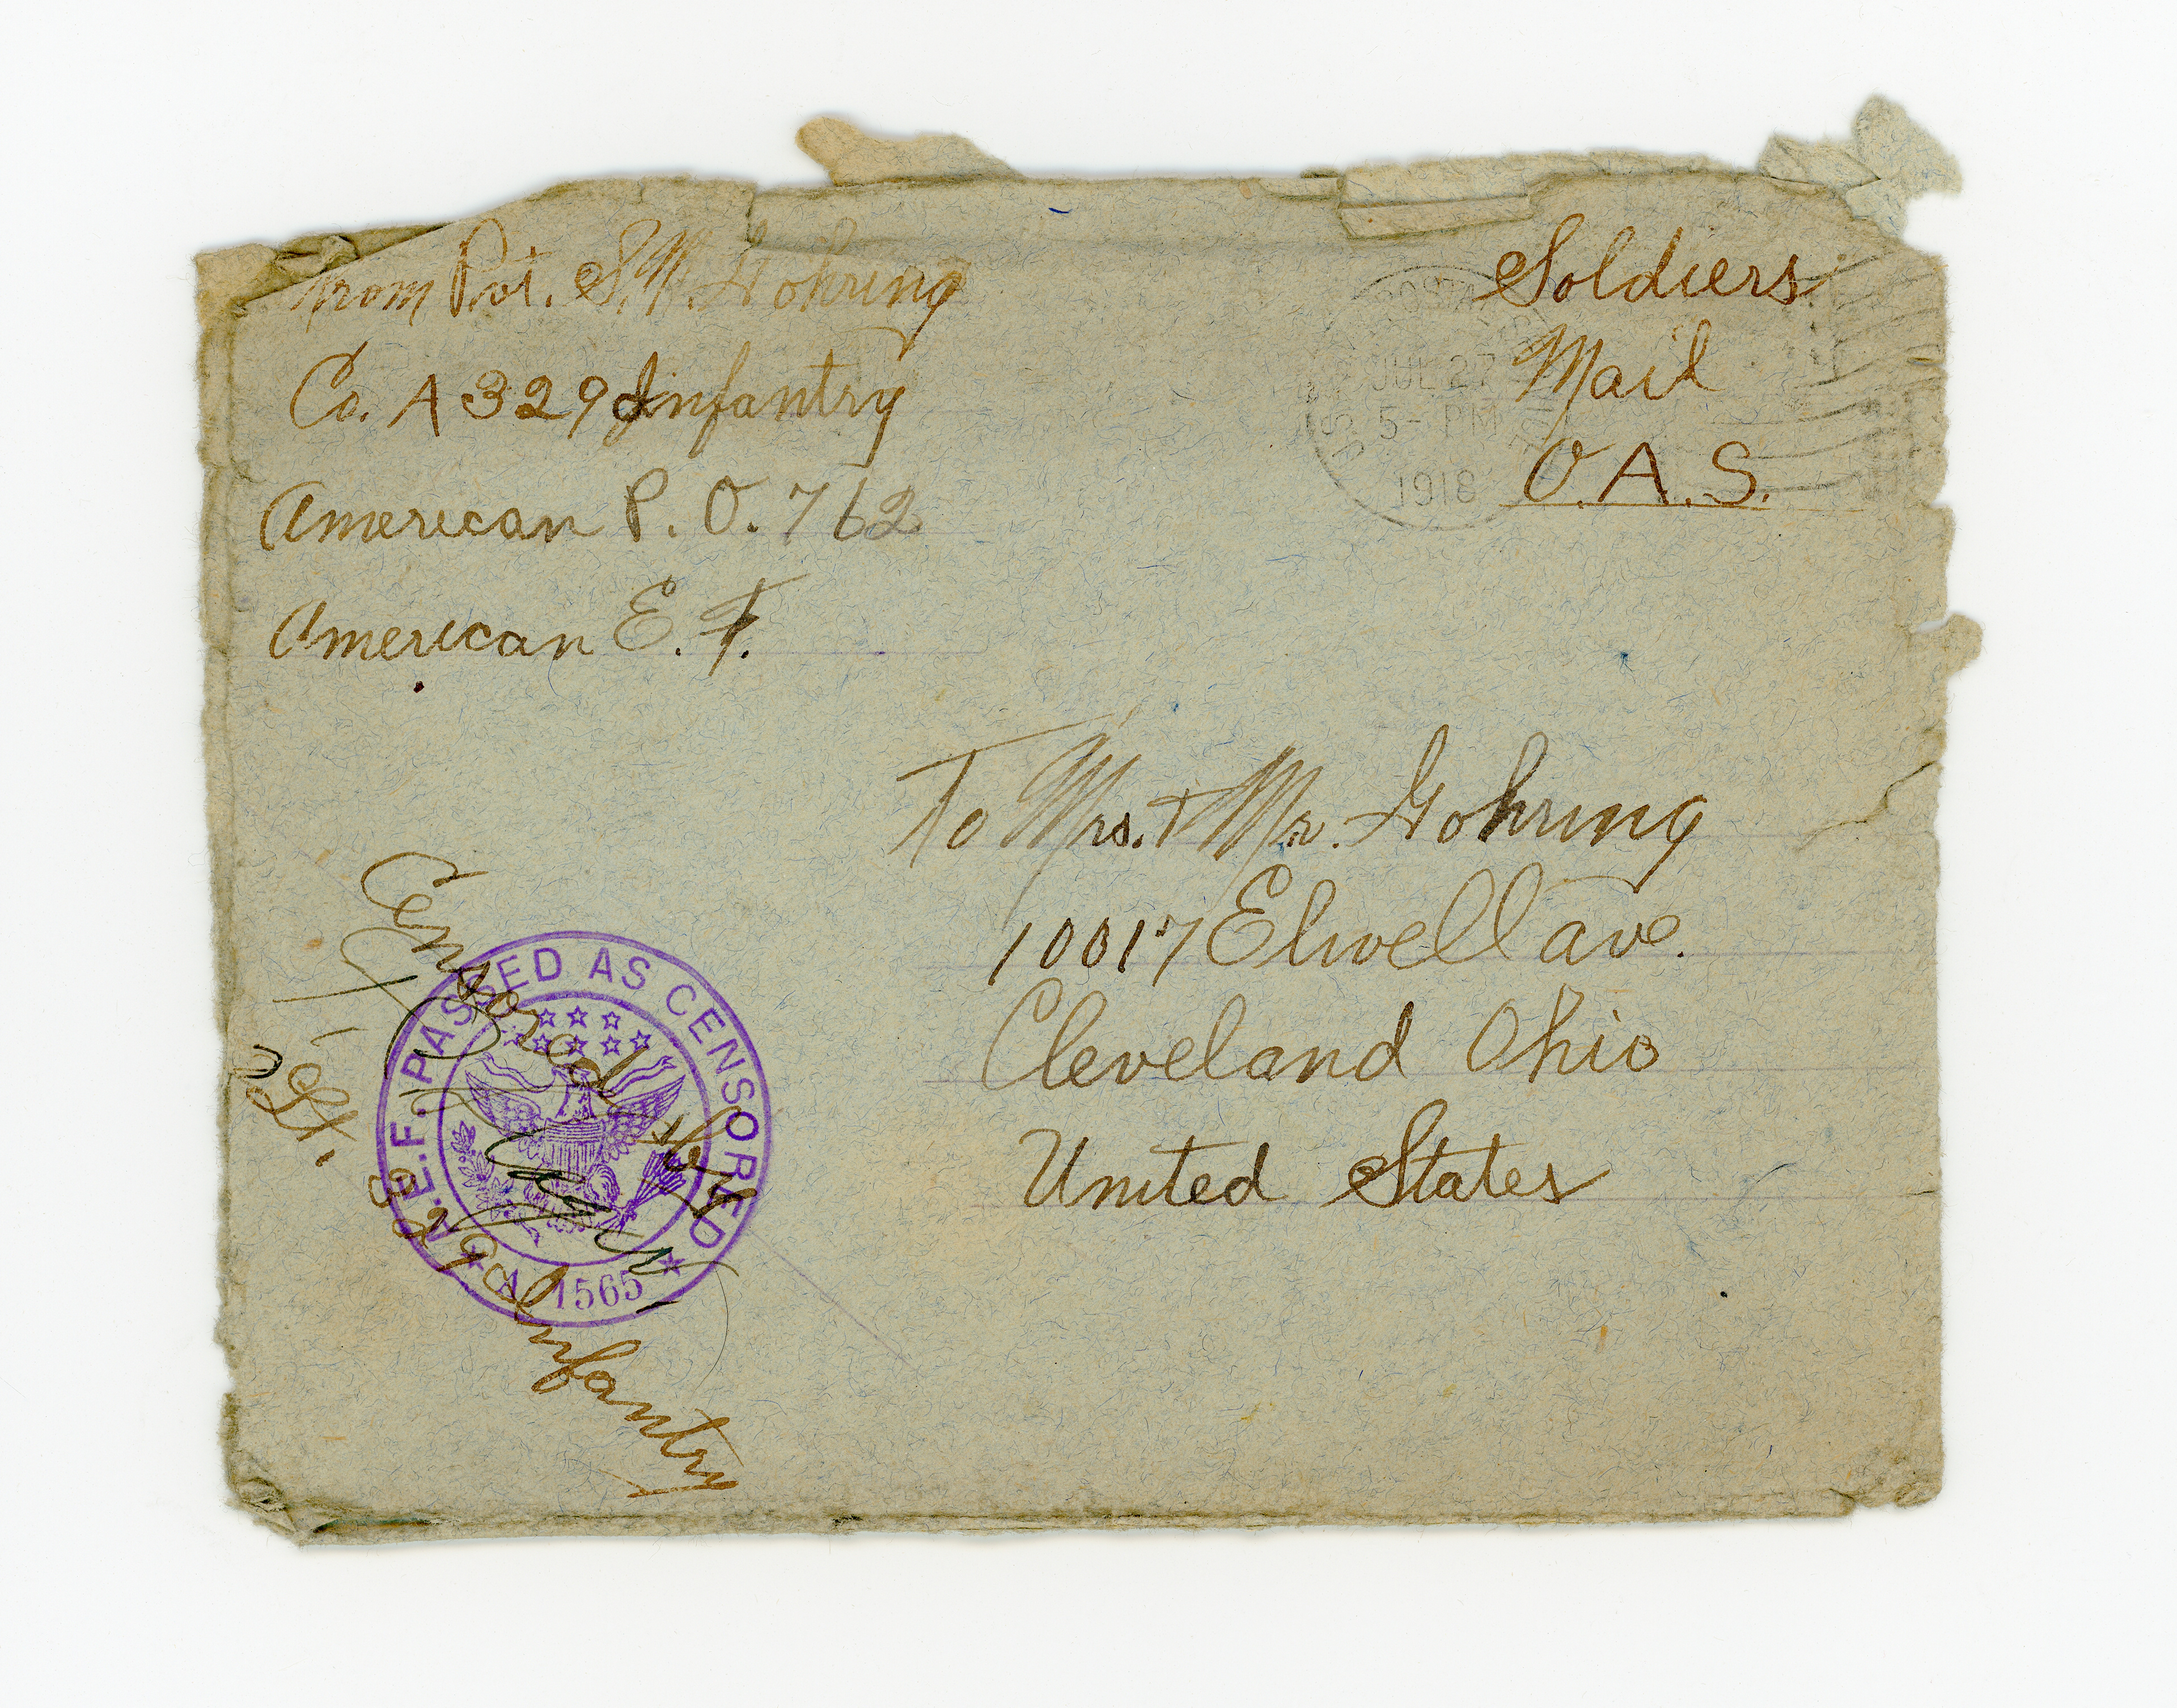 from Pvt. S.W. Gohring
Co. A 329 Infantry
American P. O. 762
American E. F.
Soldiers
Mail
O. A. S.
JUL 27
5 - PM
1918
To Mrs. & Mr. Gohring
10017 Elwell ave.
Cleveland Ohio
United States
Censored by
1st Lt.
329 Infantry
A.E.F. PASSED AS CENSORED
A. 1565